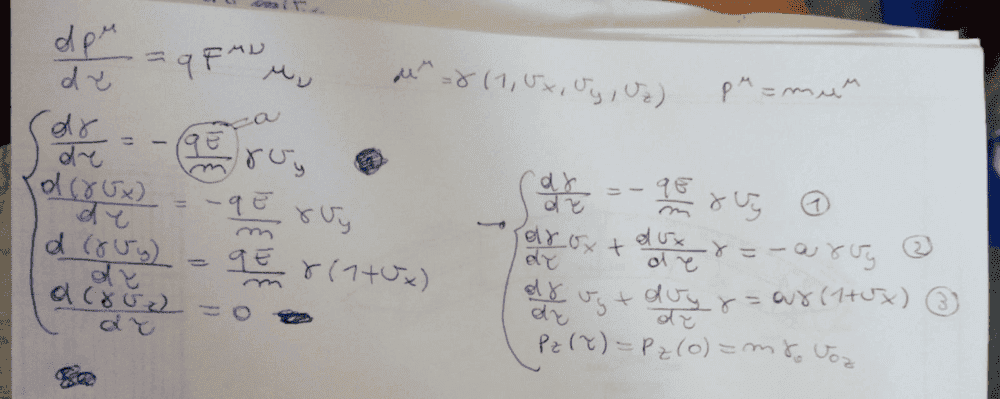 dp^μ/dτ = q F^{μν} u_ν    u^μ = γ(1, v_x, v_y, v_z)    p^μ = m u^μ
dγ/dτ = - qE/m γ v_y    a
d(γv_x)/dτ = - qE/m γ v_y
d(γv_y)/dτ = qE/m γ(1+v_x)
d(γv_z)/dτ = 0
→ dγ/dτ = - qE/m γ v_y ①
dγ/dτ v_x + dv_x/dτ γ = - a γ v_y ②
dγ/dτ v_y + dv_y/dτ γ = a γ(1+v_x) ③
p_z(τ) = p_z(0) = m γ_0 v_{0z}